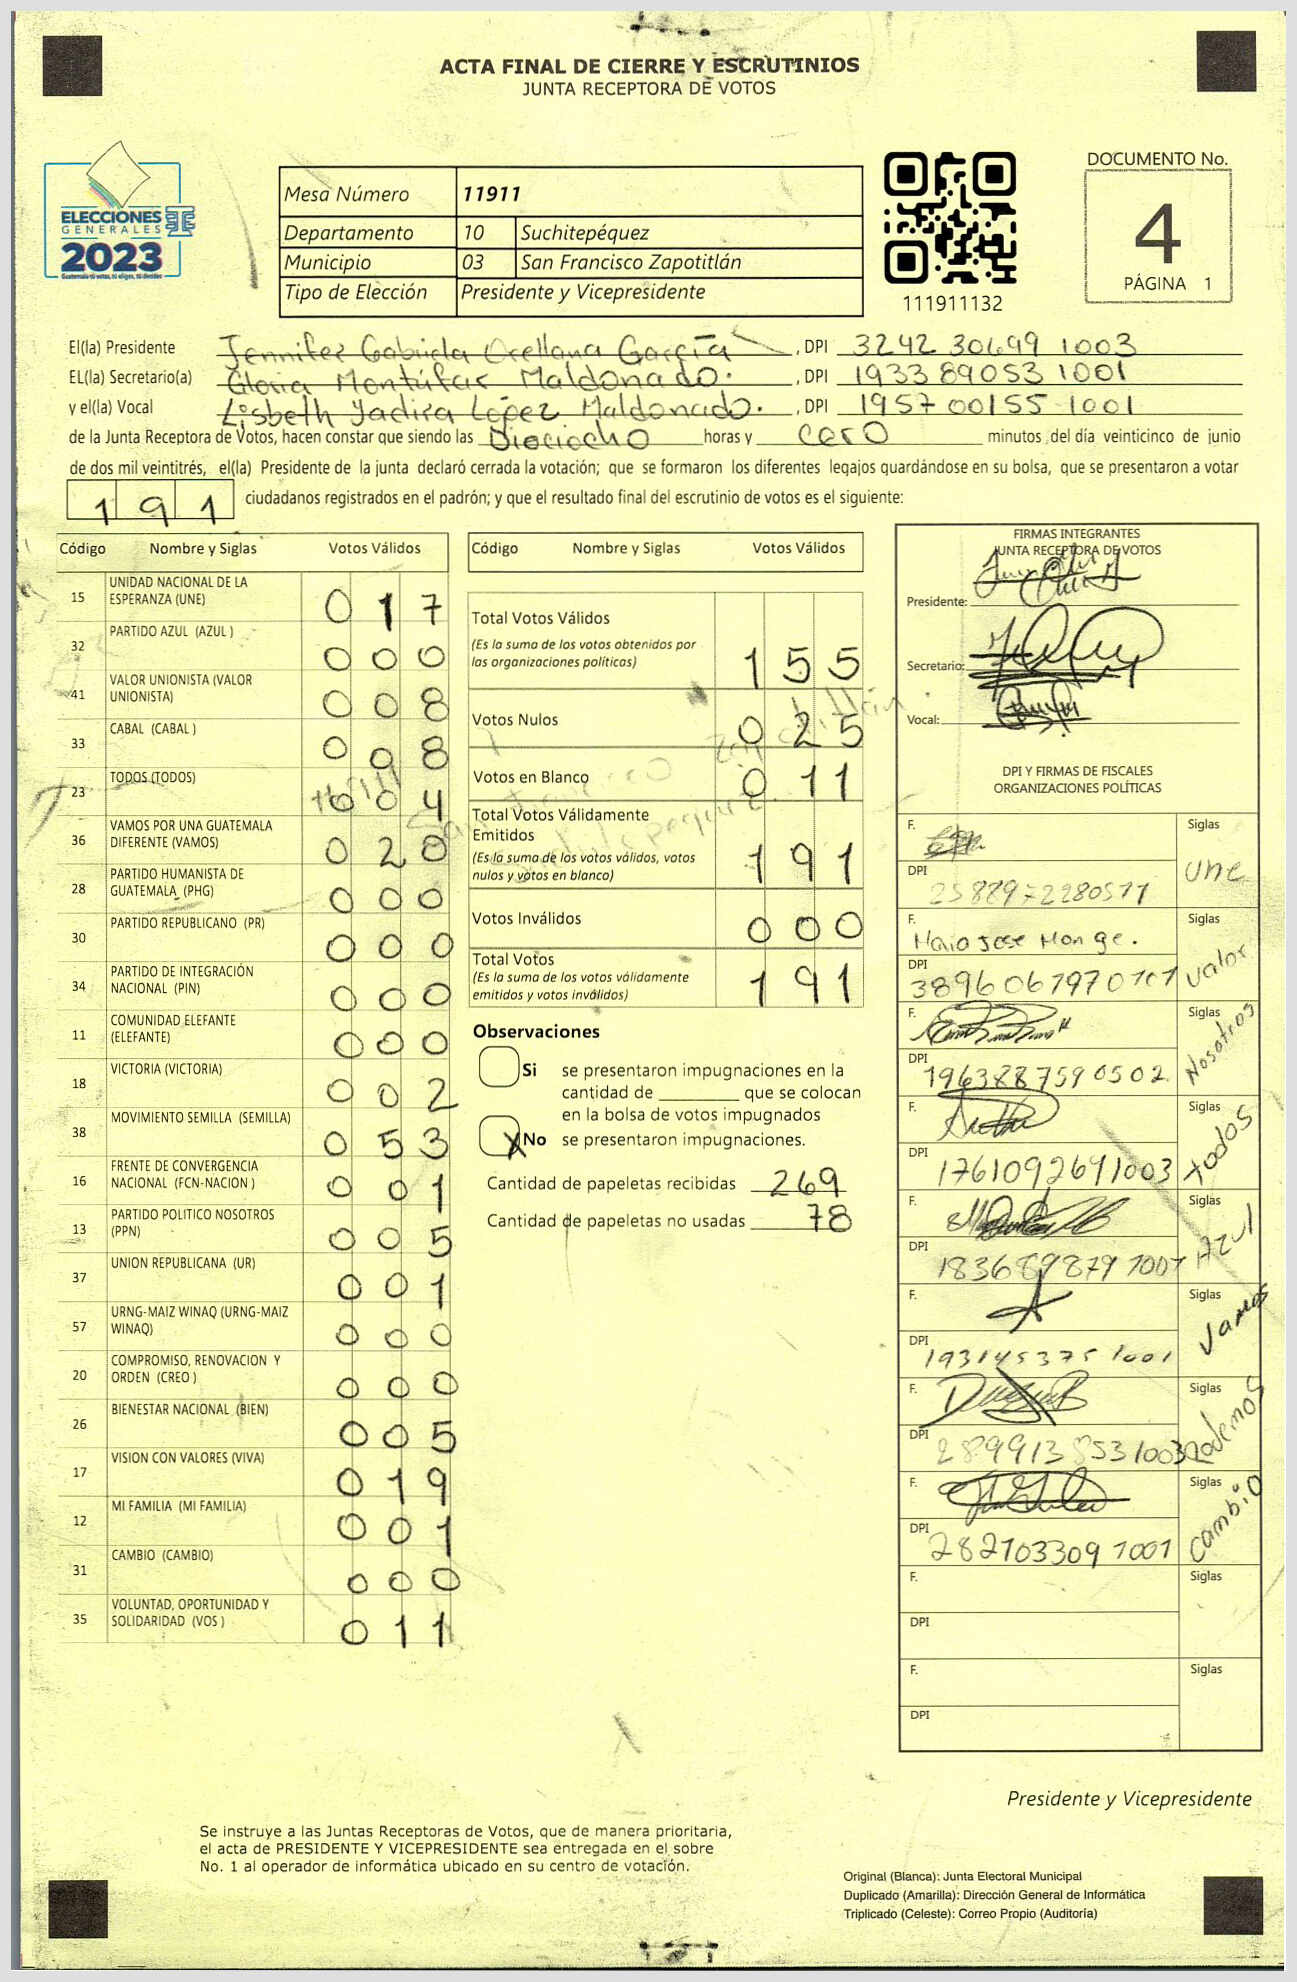 ACTA FINAL DE CIERRE Y ESCRUTINIOS
JUNTA RECEPTORA DE VOTOS
ELECCIONES
GENERALES
2023
Guatemala tú votas, tú eliges, tú decides
Mesa Número 11911
Departamento 10 Suchitepéquez
Municipio 03 San Francisco Zapotitlán
Tipo de Elección Presidente y Vicepresidente
111911132
DOCUMENTO No.
4
PÁGINA 1
El(la) Presidente Jennifer Gabriela Orellana García, DPI 3242 30699 1003
EL(la) Secretario(a) Gloria Montúfar Maldonado., DPI 1933 89053 1001
y el(la) Vocal Lisbeth Yadira López Maldonado., DPI 1957 00155 1001
de la Junta Receptora de Votos, hacen constar que siendo las Dieciocho horas y cero minutos del día veinticinco de junio
de dos mil veintitrés, el(la) Presidente de la junta declaró cerrada la votación; que se formaron los diferentes legajos guardándose en su bolsa, que se presentaron a votar
191 ciudadanos registrados en el padrón; y que el resultado final del escrutinio de votos es el siguiente:
Código Nombre y Siglas Votos Válidos
15 UNIDAD NACIONAL DE LA ESPERANZA (UNE) 017
32 PARTIDO AZUL (AZUL ) 000
41 VALOR UNIONISTA (VALOR UNIONISTA) 008
33 CABAL (CABAL ) 008
23 TODOS (TODOS) 004
36 VAMOS POR UNA GUATEMALA DIFERENTE (VAMOS) 020
28 PARTIDO HUMANISTA DE GUATEMALA (PHG) 000
30 PARTIDO REPUBLICANO (PR) 000
34 PARTIDO DE INTEGRACIÓN NACIONAL (PIN) 000
11 COMUNIDAD ELEFANTE (ELEFANTE) 000
18 VICTORIA (VICTORIA) 002
38 MOVIMIENTO SEMILLA (SEMILLA) 053
16 FRENTE DE CONVERGENCIA NACIONAL (FCN-NACION ) 001
13 PARTIDO POLITICO NOSOTROS (PPN) 005
37 UNION REPUBLICANA (UR) 001
57 URNG-MAIZ WINAQ (URNG-MAIZ WINAQ) 000
20 COMPROMISO, RENOVACION Y ORDEN (CREO ) 000
26 BIENESTAR NACIONAL (BIEN) 005
17 VISION CON VALORES (VIVA) 019
12 MI FAMILIA (MI FAMILIA) 001
31 CAMBIO (CAMBIO) 000
35 VOLUNTAD, OPORTUNIDAD Y SOLIDARIDAD (VOS ) 011
Código Nombre y Siglas Votos Válidos
Total Votos Válidos
(Es la suma de los votos obtenidos por
las organizaciones políticas) 155
Votos Nulos 025
Votos en Blanco 011
Total Votos Válidamente
Emitidos
(Es la suma de los votos válidos, votos
nulos y votos en blanco) 191
Votos Inválidos 000
Total Votos
(Es la suma de los votos válidamente
emitidos y votos inválidos) 191
Observaciones
Si se presentaron impugnaciones en la
cantidad de ________ que se colocan
en la bolsa de votos impugnados
X No se presentaron impugnaciones.
Cantidad de papeletas recibidas 269
Cantidad de papeletas no usadas 78
FIRMAS INTEGRANTES
JUNTA RECEPTORA DE VOTOS
Presidente:
Secretario:
Vocal:
DPI Y FIRMAS DE FISCALES
ORGANIZACIONES POLÍTICAS
F. Siglas une
DPI
F. Siglas Valor
DPI
F. Siglas Nosotros
DPI 1963887590502
F. Siglas todos
DPI 1761092691003
F. Siglas Azul
DPI 1836898791001
F. Siglas Vamos
DPI 1931453751001
F. Siglas Podemos
DPI 2899138531003
F. Siglas Cambio
DPI 2821033091001
F. Siglas
DPI
F. Siglas
DPI
Presidente y Vicepresidente
Se instruye a las Juntas Receptoras de Votos, que de manera prioritaria,
el acta de PRESIDENTE Y VICEPRESIDENTE sea entregada en el sobre
No. 1 al operador de informática ubicado en su centro de votación.
Original (Blanca): Junta Electoral Municipal
Duplicado (Amarilla): Dirección General de Informática
Triplicado (Celeste): Correo Propio (Auditoría)